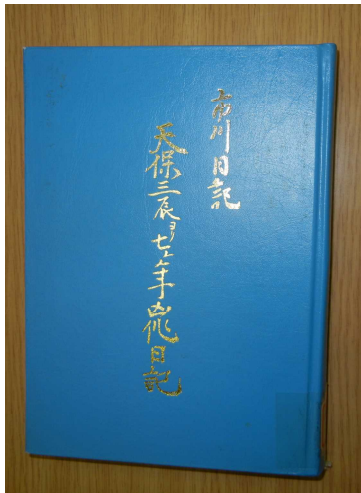 市川日記
天保三辰ヨリ七ケ年凶作日記